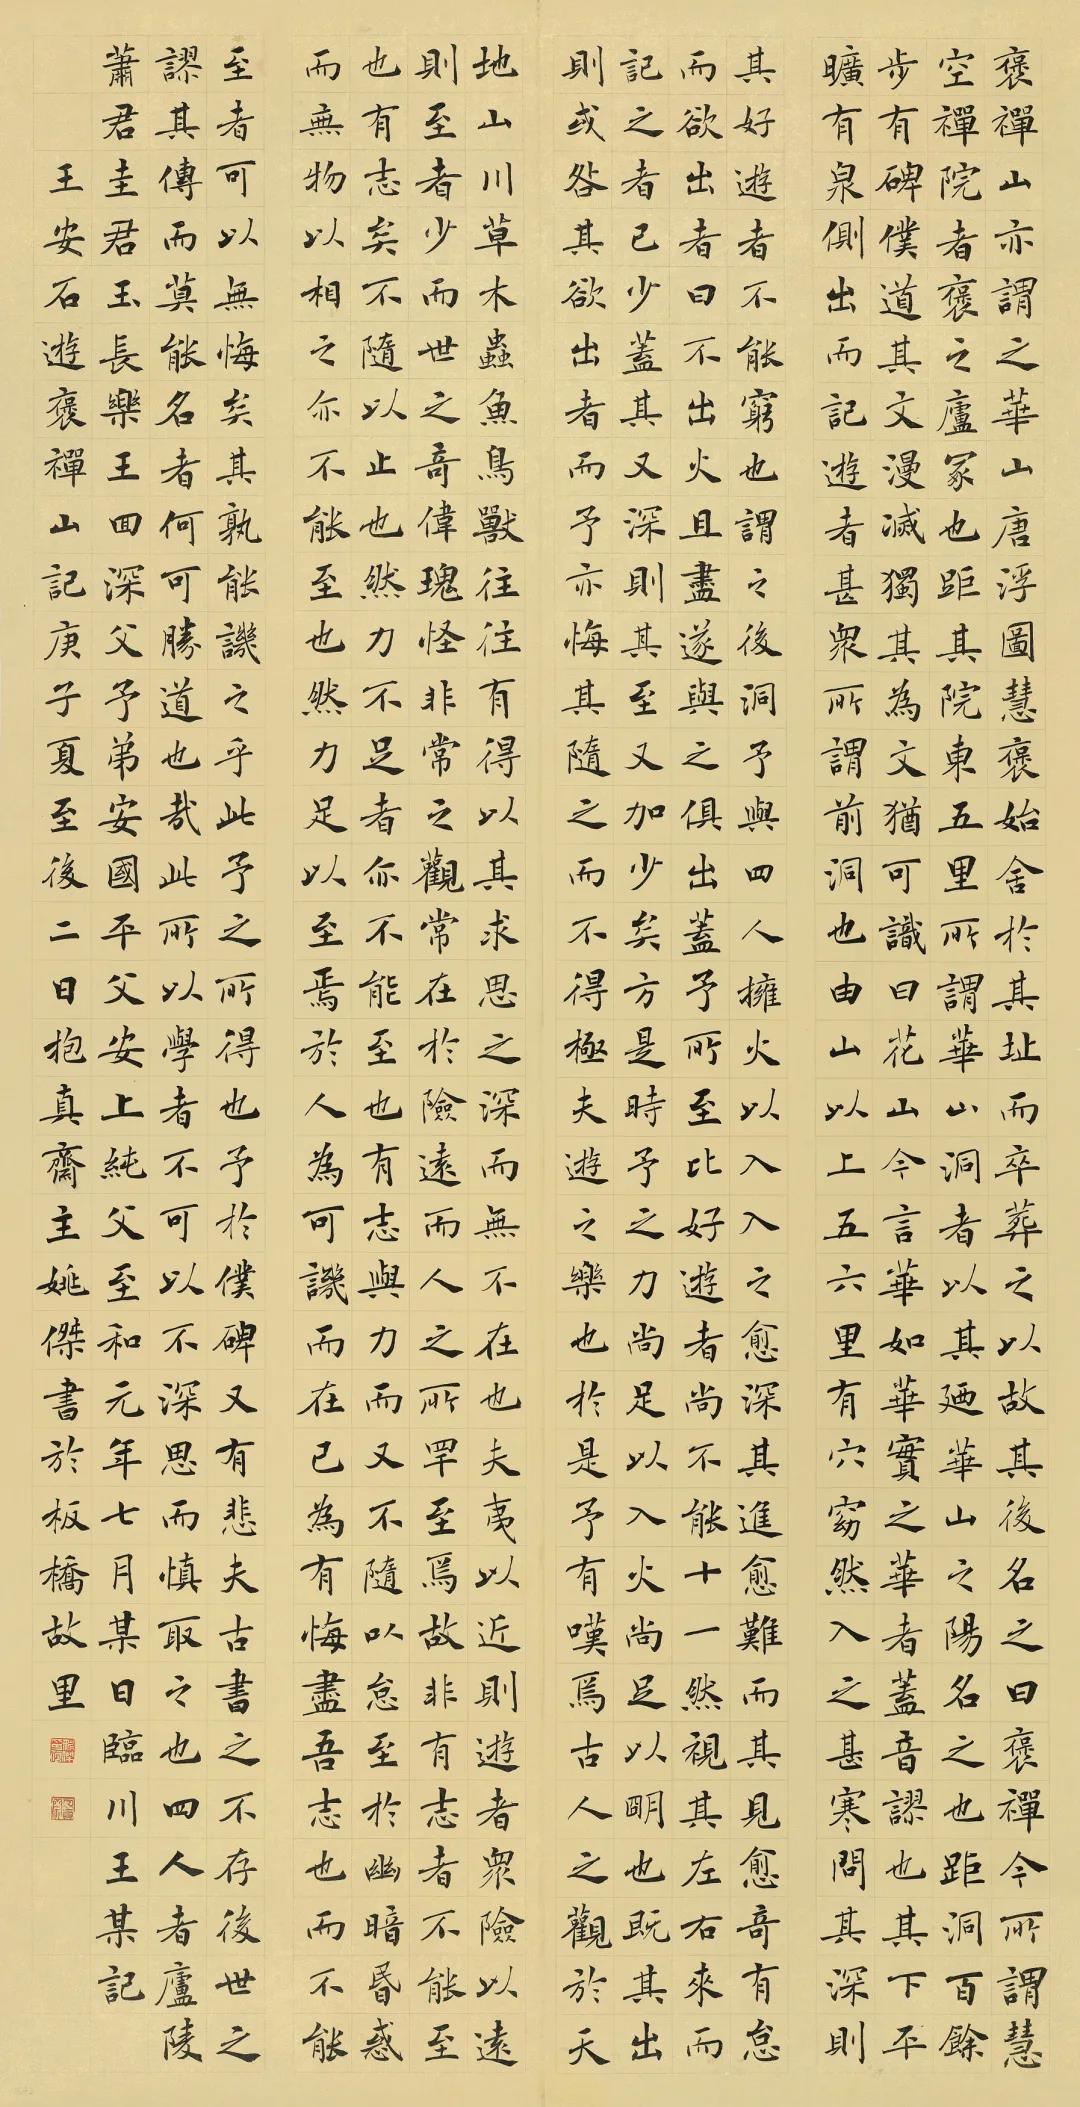 褒禪山亦謂之華山唐浮圖慧褒始舍於其址而卒葬之以故其後名之曰褒禪今所謂慧
空禪院者褒之廬冢也距其院東五里所謂華山洞者以其廼華山之陽名之也距洞百餘
步有碑僕道其文漫滅獨其為文猶可識曰花山今言華如華實之華者蓋音謬也其下平
曠有泉側出而記遊者甚眾所謂前洞也由山以上五六里有穴窈然入之甚寒問其深則
其好遊者不能窮也謂之後洞予與四人擁火以入入之愈深其進愈難而其見愈奇有怠
而欲出者曰不出火且盡遂與之俱出蓋予所至比好遊者尚不能十一然視其左右來而
記之者已少蓋其又深則其至又加少矣方是時予之力尚足以入火尚足以明也既其出
則或咎其欲出者而予亦悔其隨之而不得極夫遊之樂也於是予有嘆焉古人之觀於天
地山川草木蟲魚鳥獸往往有得以其求思之深而無不在也夫夷以近則遊者眾險以遠
則至者少而世之奇偉瑰怪非常之觀常在於險遠而人之所罕至焉故非有志者不能至
也有志矣不隨以止也然力不足者亦不能至也有志與力而又不隨以怠至於幽暗昏惑
而無物以相之亦不能至也然力足以至焉於人為可譏而在己為有悔盡吾志也而不能
至者可以無悔矣其孰能譏之乎此予之所得也予於僕碑又有悲夫古書之不存後世之
謬其傳而莫能名者何可勝道也哉此所以學者不可以不深思而慎取之也四人者廬陵
蕭君圭君玉長樂王回深父予弟安國平父安上純父至和元年七月某日臨川王某記
王安石遊褒禪山記庚子夏至後二日抱真齋主姚傑書於板橋故里